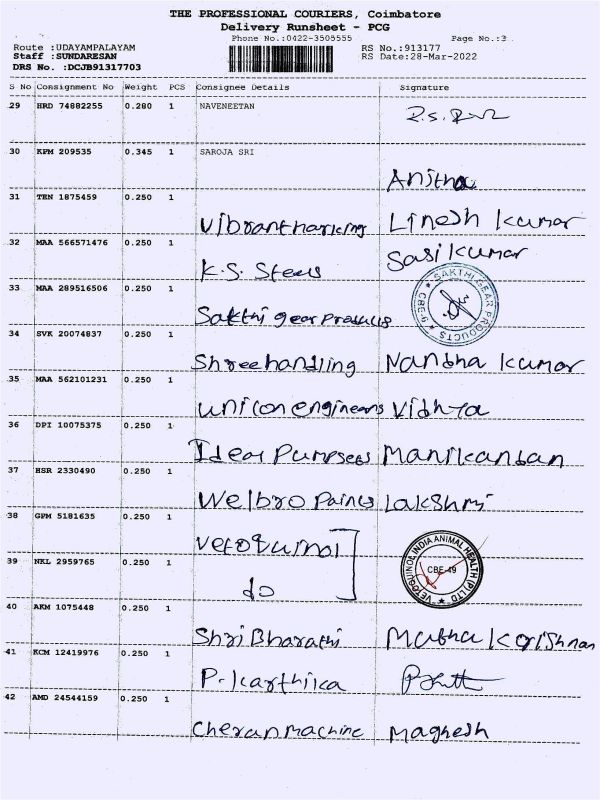 THE PROFESSIONAL COURIERS, Coimbatore
Delivery Runsheet - PCG
Phone No.:0422-3505555 Page No.:3
Route :UDAYAMPALAYAM RS No.:913177
Staff :SUNDARESAN RS Date:28-Mar-2022
DRS No. :DCJB91317703
S No Consignment No Weight PCS Consignee Details Signature
29 HRD 74882255 0.280 1 NAVENEETAN
30 KPM 209535 0.345 1 SAROJA SRI Anitha
31 TEN 1875459 0.250 1 Linesh kumar
32 MAA 566571476 0.250 1 K.S. Steels Sasikumar
33 MAA 289516506 0.250 1 Sakthi gear products SAKTHI GEAR PRODUCTS
34 SVK 20074837 0.250 1 Shreehandling Nandha kumar
35 MAA 562101231 0.250 1 unicon engineers Vidhya
36 DPI 10075375 0.250 1 Idear Pumpsets Manikandan
37 HSR 2330490 0.250 1 Welbro Paints Lakshmi
38 GPM 5181635 0.250 1 Vetoquinol
39 NKL 2959765 0.250 1 do VETOQUINOL INDIA ANIMAL HEALTH (P) LTD CBE-49
40 AKM 1075448 0.250 1 Shri Bharathi
41 KCM 12419976 0.250 1 P. karthika
42 AMD 24544159 0.250 1 Cheran machine Maghesh